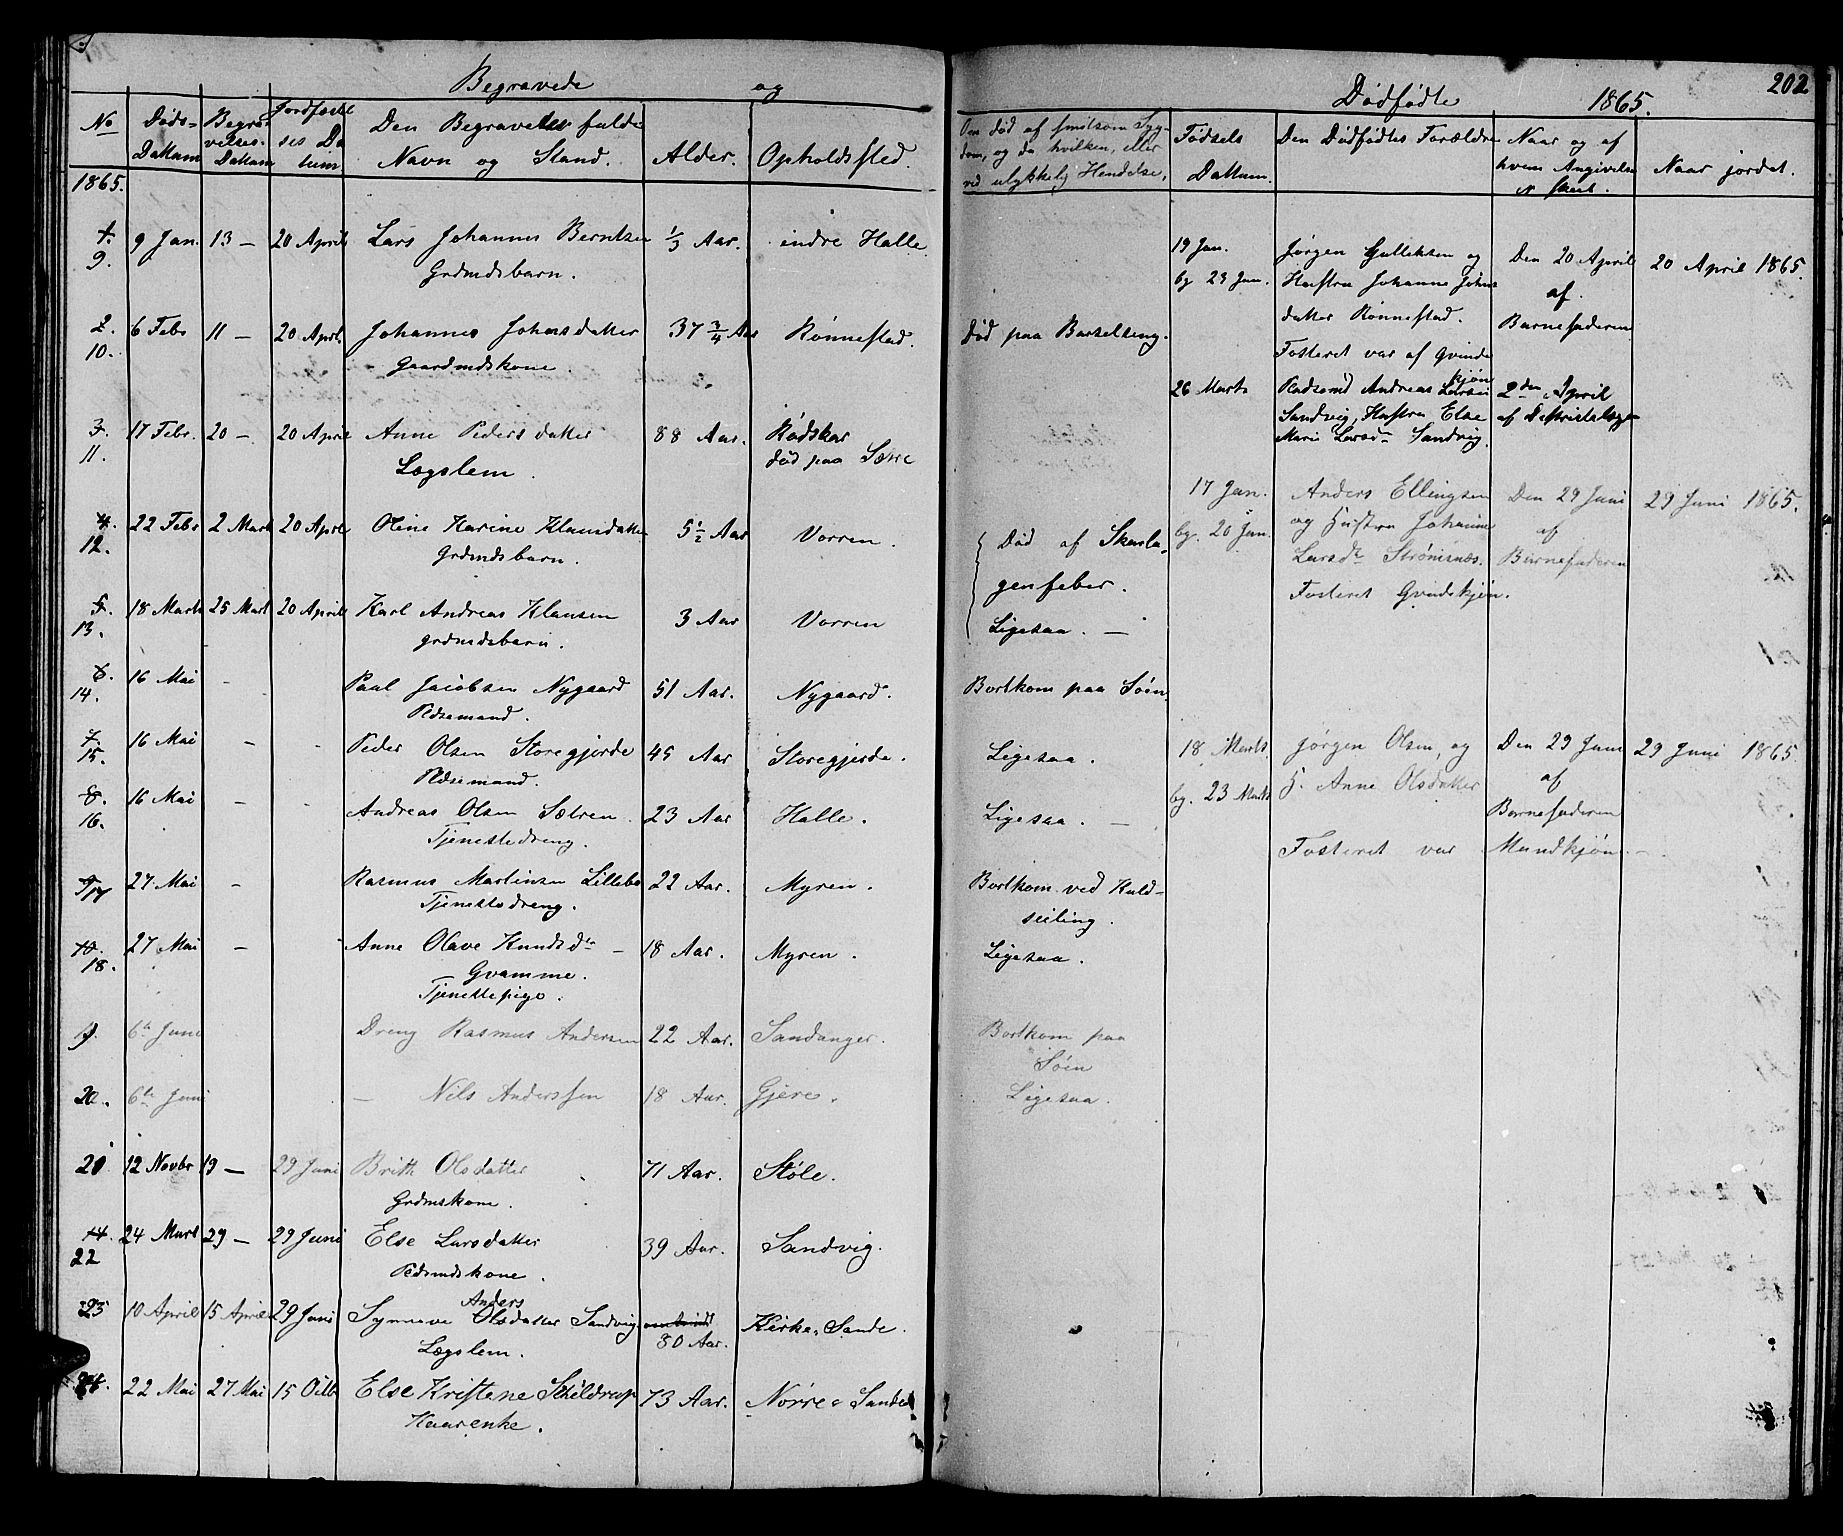 Begravede og
No
Døds-
Dattum
Begra-
velses-
Dattum
Jordfæstel
ses Da
tum
Den Begravedes fulde
Navn og Stand.
Alder.
Opholdsted.
1865.
1. 9 Jan. 13 — 20 April Lars Johannes Berntsen 1/3 Aar. indre Halle.
9. Grdmdsbarn.
2. 6 Febr 11 — 20 April Johannes Johnsdatter 37 3/4 Aar Rønnestad.
10. Gaardmdskone.
3. 17 Febr. 20 — 20 April Anne Peders datter 88 Aar. Rødskar
11. Lægslem. død paa Særre
4. 22 Febr 2 Mart 20 April Oline Karine Klausdatter 5 1/2 Aar Vorren.
12. Grdmdsbarn.
5. 18 Marts 25 Mart 20 April Karl Andreas Klausen 3 Aar Vorren
13. grdmdsbarn.
6. 16 Mai - Paal Jacobsen Nygaard 51 Aar. Nygaard.
14. Pldsemand.
7. 16 Mai - - Peder Olsen Storegjerde 45 Aar Storegjerde.
15. Pldsemand.
8. 16 Mai - - Andreas Olsen Sætren. 23 Aar Halle.
16. Tjenestedreng.
9. 17 27 Mai - Rasmus Martinsen Lillebø 22 Aar. Myren.
Tjenestedreng.
10. 27 Mai - Anne Olave Knudsdr — 18 Aar. Myren.
18. Gvamme.
Tjenestepige.
19. 6te Juni Dreng Rasmus Andersen 22 Aar. Sandanger.
20. 6te Juni — Nils Anderssen 18 Aar. Gjere.
21 12 Novbr 19 — 29 Juni Brith Olsdatter 71 Aar. Støle.
Grdmskone.
14. 24 Mart 29 — 29 Juni Else Larsdatter 39 Aar. Sandvig.
22 Pldsmdskone.
Anders
23 10 April 15 April 29 Juni Synneve Olsdatter Sandvig Kirke-Sande.
Lægslem. 80 Aar.
24. 22 Mai 27 Mai 15 Octb Else Kristene Schildrup 73 Aar. Nørre-Sande
Kaarenke.
Dødfødte 1865. 202
Om død af smitsom Syg-
dom, og da hvilken, eller
ved ulykkelig Hendelse,
Fødsels
Dattum.
Den Dødfødtes Forældre
Naar og af
hvem Angivelse
er skeet.
Naar jordet.
19 Jan. Jørgen Gulleksen og Den 20 April 20 April 1865.
bg 23 Jan. Hustru Johanne Johns af
datter Rønnestad. Barnefaderen
Død paa Barselseng.
Fosteret var af Qvinde
kjøn
26 Marts Pladsemd Andreas Larsen 2den April
Sandvig, Hustru Else
Marie Larsdr Sandvig.
17 Jan. Anders Ellingsen Den 29 Juni 29 Juni 1865.
bg. 20 Jan. og Hustru Johanne af
Larsdr Strømsnæs. Barnefaderen
Fosteret Qvindekjøn.
Død af Skarla-
gensfeber.
Ligesaa. —
Bortkom paa Søen
18 Marts Jørgen Olsen og Den 29 Juni 29 Juni 1865.
bg. 23 Marts H. Anne Olsdatter af
Barnefaderen
Fosteret var Mandkjøn —
Ligesaa.
Ligesaa. —
Bortkom ved Kuld-
seiling.
Ligesaa.
Bortkom paa
Søen
Ligesaa.